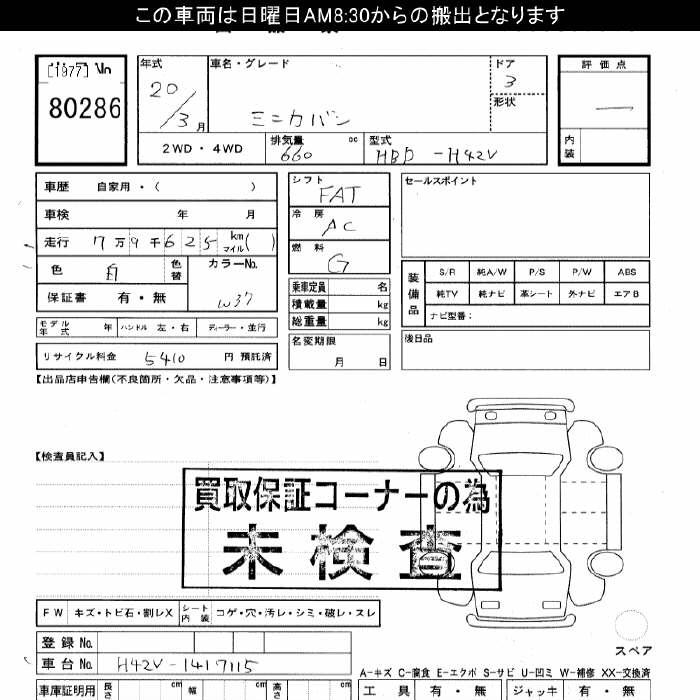 この車両は日曜日AM8:30からの搬出となります
[1977] Vn
80286
年式
20/3月
車名・グレード
ミニカバン
ドア
3
形状
評価点
―
内装
2WD・4WD
排気量 cc
660
型式
HBD-H42V
車歴 自家用・( )
車検 年 月
走行 7万9千625 km マイル( )
色 白 色替
カラーNo.
W37
保証書 有・無
モデル年式 年 ハンドル 左・右 ディーラー・並行
リサイクル料金 5410 円 預託済
シフト
FAT
冷房
AC
燃料
G
乗車定員 名
積載量 kg
総重量 kg
名変期限
月 日
セールスポイント
装備品
S/R 純A/W P/S P/W ABS
純TV 純ナビ 革シート 外ナビ エアB
ナビ型番:
後日品
【出品店申告欄(不良箇所・欠品・注意事項等)】
【検査員記入】
買取保証コーナーの為
未検査
FW キズ・トビ石・割レX シート内装 コゲ・穴・汚レ・シミ・破レ・スレ
登録No.
車台No. H42V-1417115
スペア
A-キズ C-腐食 E-エクボ S-サビ U-凹ミ W-補修 XX-交換済
車庫証明用 長さ cm 幅 cm 高さ cm
工具 有・無 ジャッキ 有・無